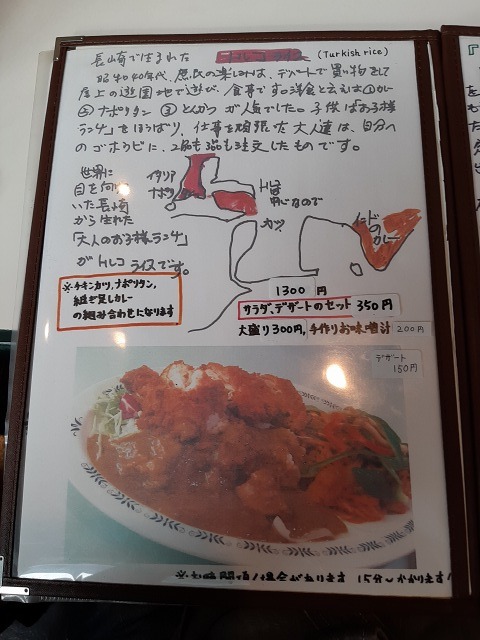 長崎で生まれた トルコライス (Turkish rice)
昭和40年代、庶民の楽しみは、デパートで買い物をして
屋上の遊園地で遊び、食事です。洋食と云えば①カレー
② ナポリタン ③とんかつ が人気でした。子供は「お子様
ランチ」をほうばり、仕事を頑張った大人達は、自分への
ゴホウビに、2品も3品も注文したものです。
世界に
目を向け
いた長崎
から生れた
「大人のお子様ランチ」
が トルコ ライスです。
イタリア
ナポリ
トルコは
中心なので
カツ
インド
の
カレー
※チキンカツ、ナポリタン、
継ぎ足しカレー
の組み合わせになります
1300 円
サラダ、デザートのセット 350円
大盛り300円, 手作りお味噌汁 200円
デザート
150円
15分〜かかります!